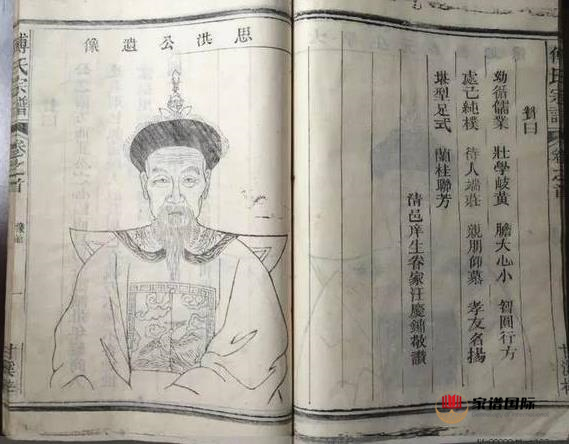 傅氏宗譜
卷之首
贊曰
幼循儒業 壯學岐黃 膽大心小 智圓行方
處己純樸 待人端莊 親朋仰慕 孝友名揚
堪型足式 蘭桂聯芳
清邑庠生眷家汪慶鏞敬讚
思洪公遺像
傅氏宗譜
卷之首
一
家谱国际